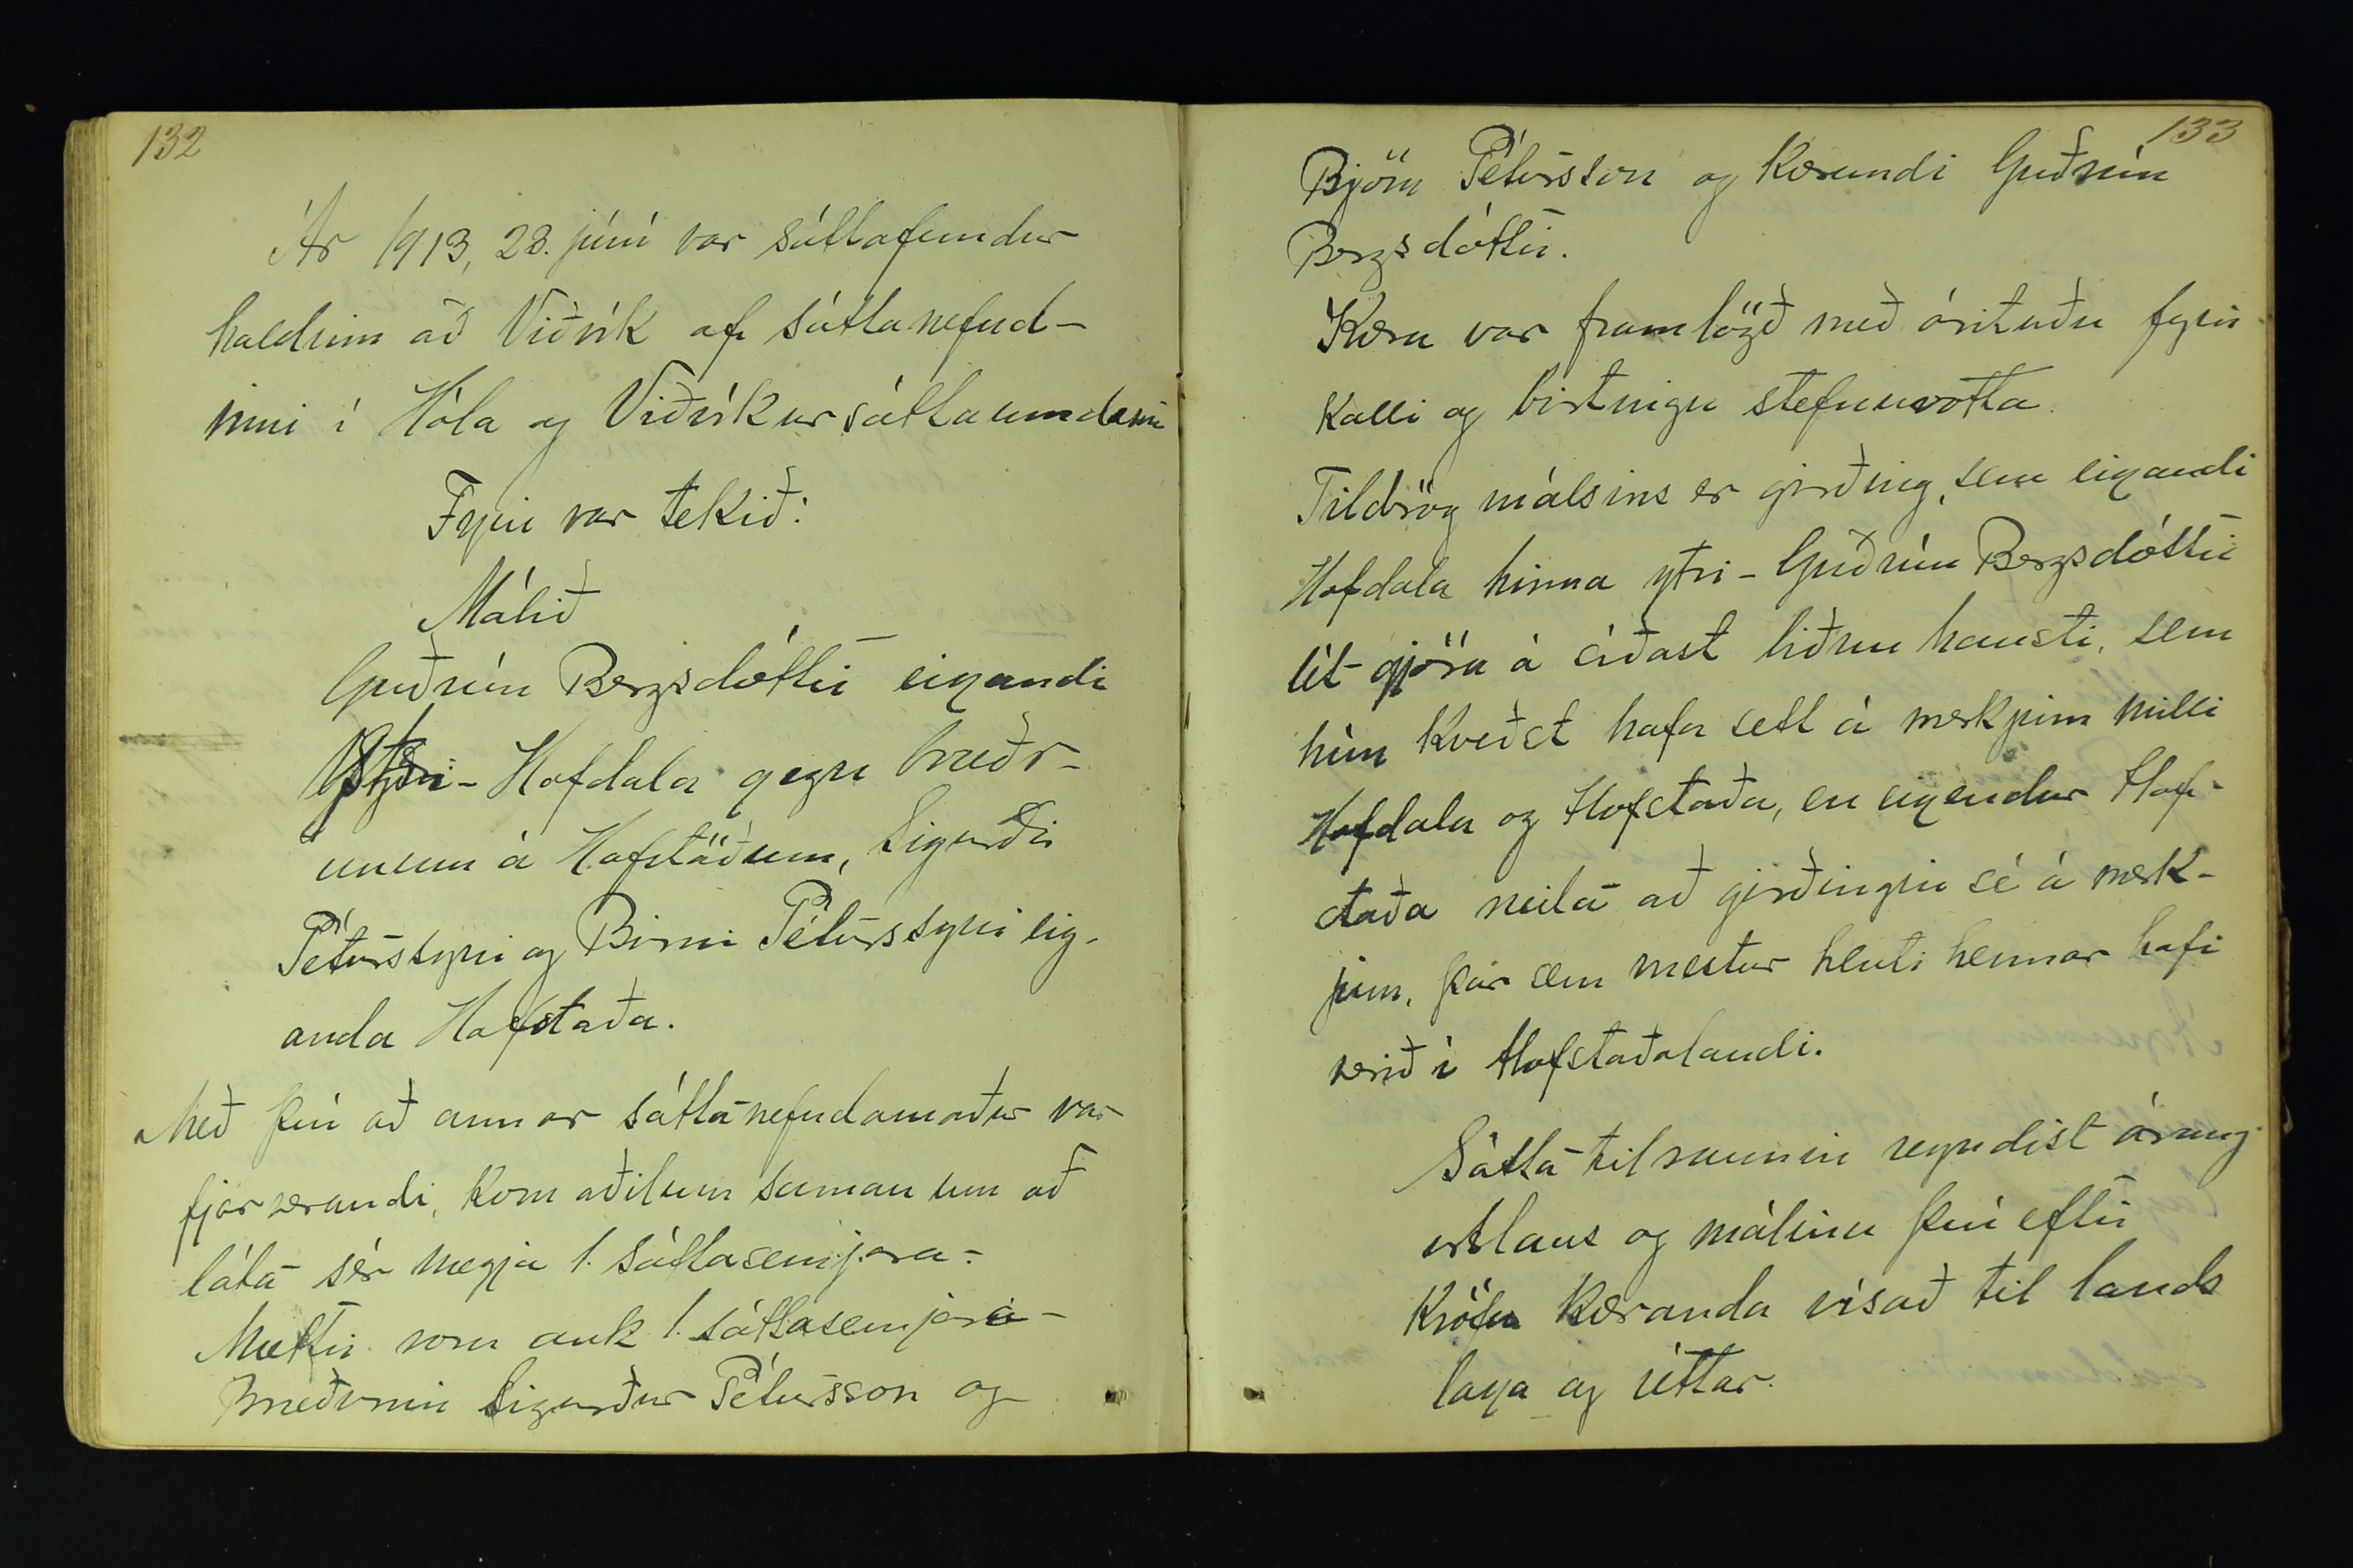 132
Ár 1913, 28. júní var sáttafundur
haldinn að Viðvík af sáttanefnd-
inni í Hóla og Viðvíkursáttaumdæmi
Fyrir var tekið:
Málið
Guðrún Bergsdóttir eigandi
Ytri-Hofdala gegn bræðr-
unum á Hofstöðum, Sigurði
Péturssyni og Birni Péturssyni eig-
anda Hofstaða.
Með því að annar sáttanefndamaður var
fjarverandi, kom aðilum saman um að
láta sér nægja 1. sáttasemjara.-
Mættir voru auk 1. sáttasemjara-
bræðurnir Sigurður Pétursson og
133
Björn Pétursson og kærandi Guðrún
Bergsdóttir.
Kæra var framlögð með árituðu fyrir
kalli og birtingu stefnuvotta.
Tildrög málsins er girðing, sem eigandi
Hofdala hinna ytri - Guðrún Bergsdóttir
lét gjöra á síðast liðnu hausti, sem
hún kveðst hafa sett á merkjum milli
Hofdala og Hofstaða, en eigendur Hof-
staða neita að girðingin sé á merk-
jum, þar sem mestur hluti hennar hafi
verið í Hofstaðalandi.
Sáttatilraunin reyndist árang-
urslaus og málinu því eftir
kröfu kæranda vísað til lands
laga og réttar.